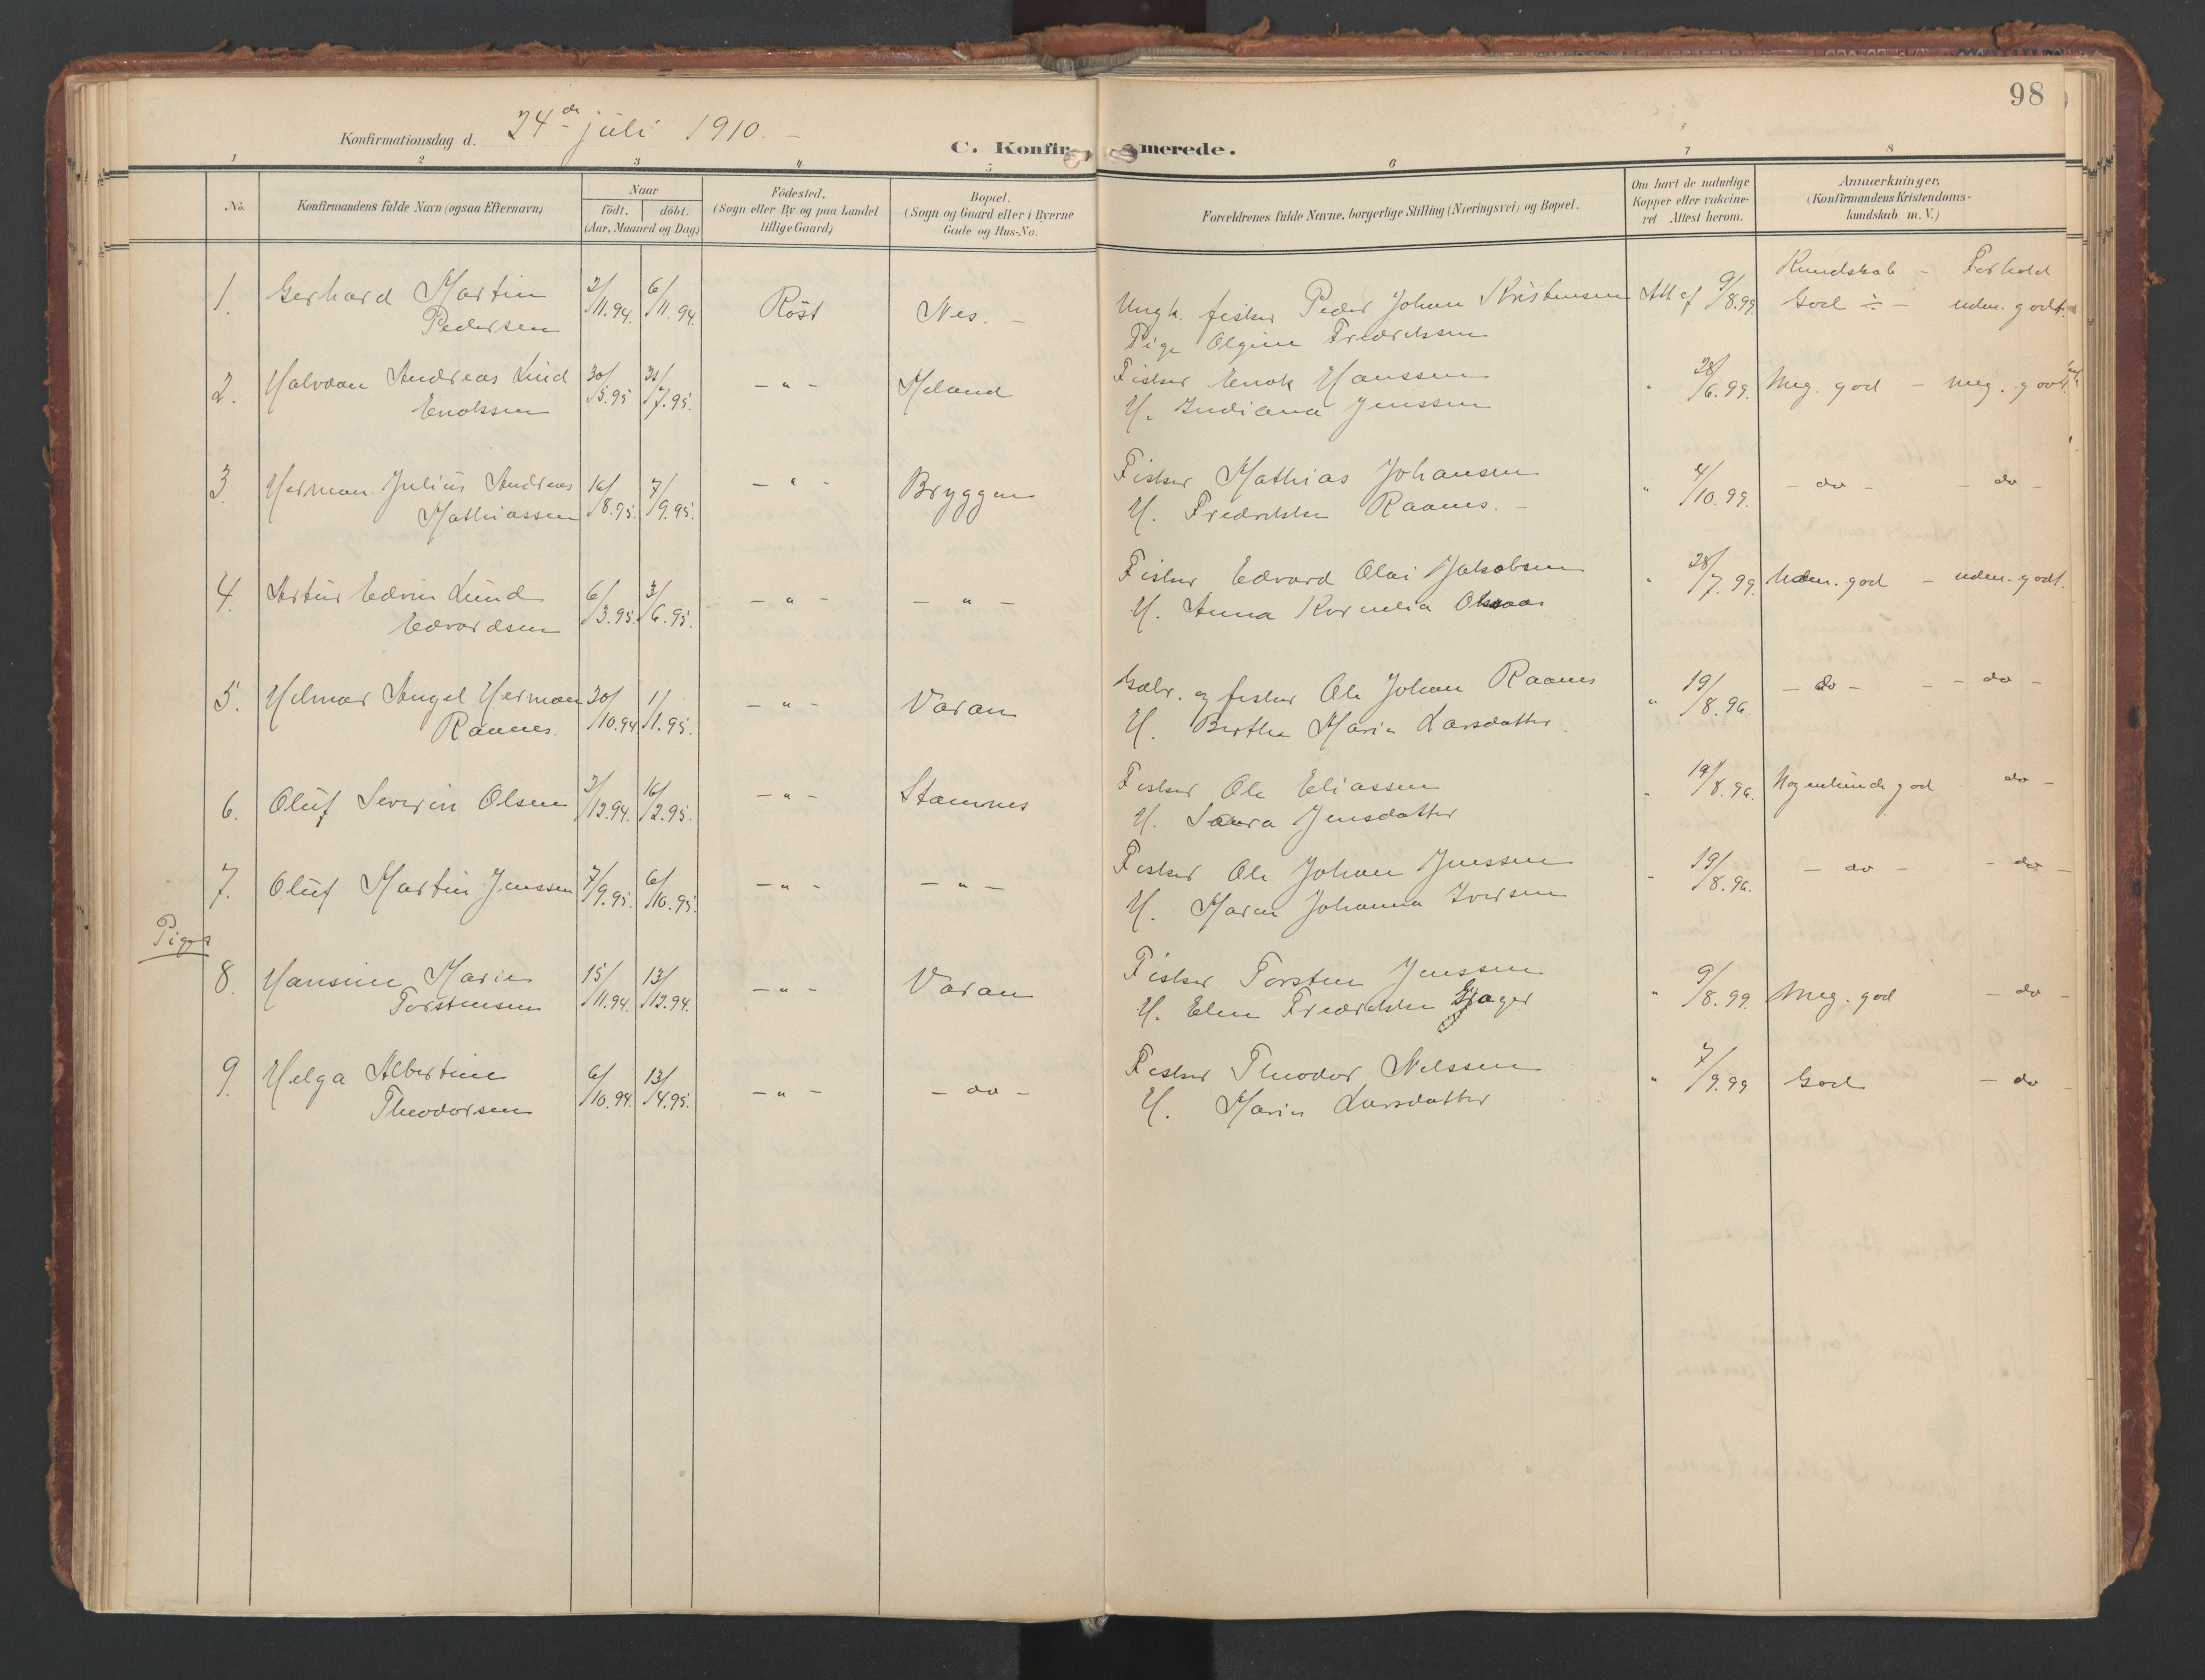 98
Konfirmationsdag d. 24de juli 1910. -
C. Konfirmerede.
1 2 3 4 5 6 7 8
No.
Konfirmandens fulde Navn (ogsaa Efternavn)
Naar
födt. döbt.
(Aar, Maaned og Dag)
Födested.
(Sogn eller By og paa Landet
tillige Gaard)
Bopæl.
(Sogn og Gaard eller i Byerne
Gade og Hus-No.
Forældrenes fulde Navne, borgerlige Stilling (Næringsvei) og Bopæl.
Om havt de naturlige
Kopper eller vakcine-
ret Attest herom.
Anmærkninger,
(Konfirmandens Kristendoms-
kundskab m. V.)
Kundskab - Forhold
1. Gerhard Martin 2/11.94. 6/11.94. Röst Nes. - Ungk. fisker Peder Johan Kristensen Att af 9/8.99. God - uden. godt.
Pedersen Pige Olgine Fredriksen
2. Halvdan Andreas Lind 30/5.95 31/7.95. - " - Meland Fisker Enok Hanssen " 28/6.99. Meg. god - meg. godt.
Enokssen H. Indiana Jenssen
3. Herman Julius Andreas 16/8.95. 7/9.95. - " - Bryggen Fisker Mathias Johansen " 4/10.99. - do - - do -
Mathiassen H. Fredrikke Raanes. -
4. Artur Edvin Lund 6/3.95. 3/6.95. - " - - " - Fisker Edvard Olai Jakobsen " 28/7.99. Uden. god - uden. godt.
Edvardsen H. Anna Kornelia
5. Hilmar Angel Herman 30/10.94. 1/1.95. - " - Varan Gabr. og fisker Ole Johan Raanes " 19/8.96. - do - - do -
Raanes. H. Berthe Maria Larsdatter.
6. Oluf Severin Olsen 2/12.94. 16/2.95. - " - Stamnes Fisker Ole Eliassen " 19/8.96. Nogenlunde god do -
H. Laura Jensdatter
7. Oluf Martin Jenssen 7/9.95. 6/10.95. - " - - " - Fisker Ole Johan Jenssen " 19/8.96. - do - - do -
H. Maren Johanna Iversen
Piger
8. Hansine Marie 15/11.94. 13/12.94. - " - Varan Fisker Torsten Jenssen " 9/8.99. Meg. god - do -
Torstensen H. Elen Fredrikke
9. Helga Albertine 6/10.94. 13/4.95. - " - - do - Fisker Theodor Nilssen " 7/9.99 God - do
Theodorsen H. Marie Larsdatter